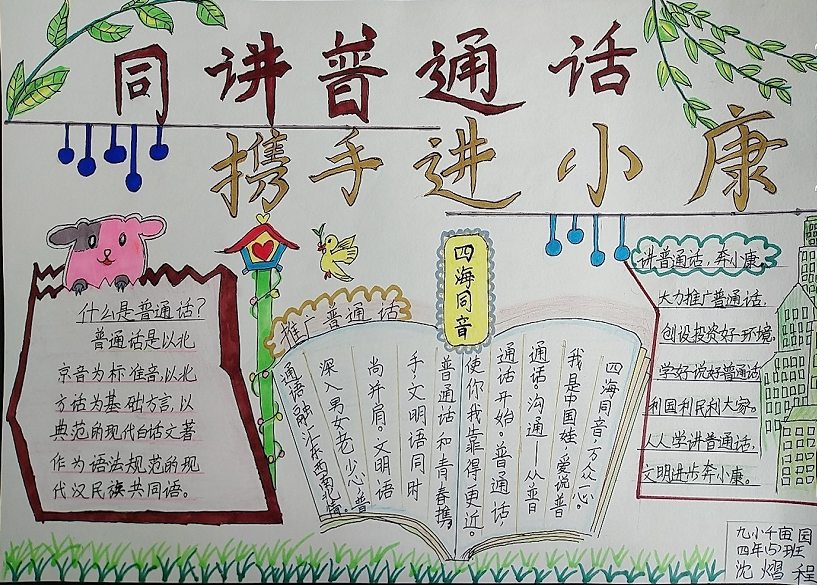 同讲普通话
携手进小康
什么是普通话?
普通话是以北
京音为标准音,以北
方话为基础方言,以
典范的现代白话文著
作为语法规范的现
代汉民族共同语。
推广普通话
四海同音
四海同音,万众一心。
我是中国娃,爱说普
通话沟通—从亚日
通话开始。普通话
使你我靠得更近。
普通话和青春携
手,文明语同时
尚并肩。文明语
深入男女老少心,普
通语融汇东西南北情。
讲普通话,奔小康。
大力推广普通话,
创设投资好环境。
学好说好普通话
利国利民利大家。
人人学讲普通话,
文明进步奔小康。
九小千亩园
四年(5)班
沈熠程